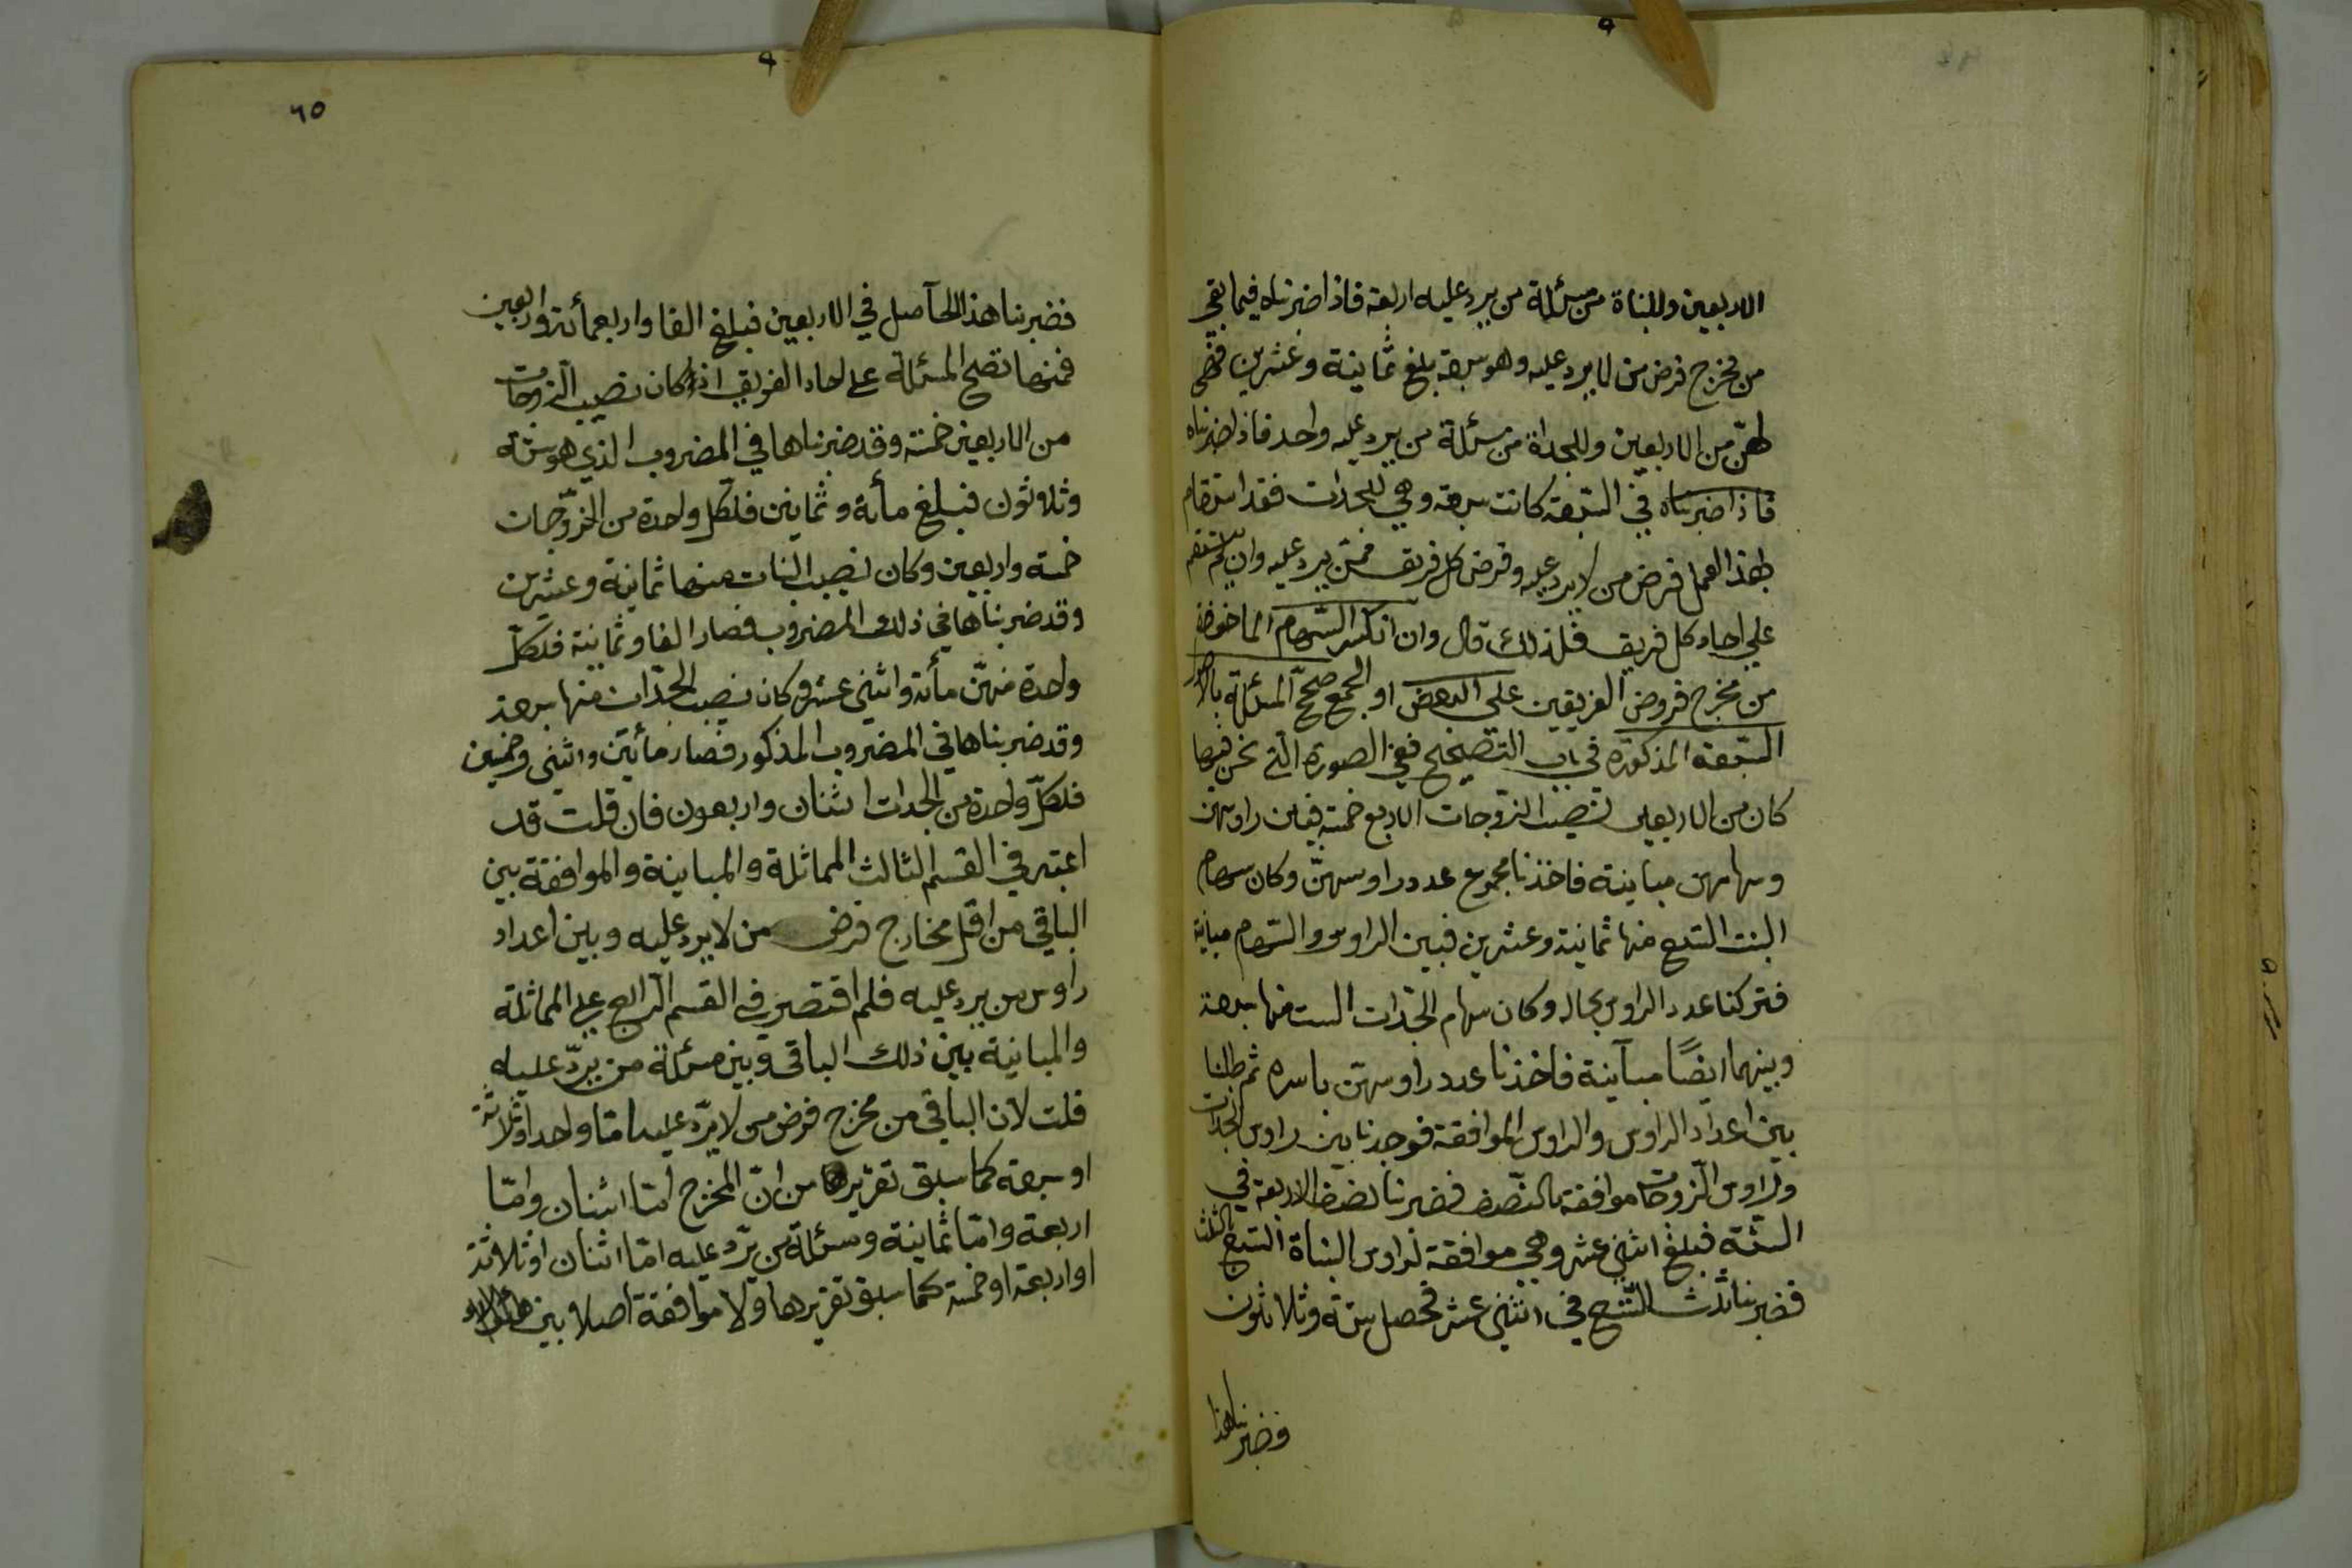 الاربعين وللبناة من مسئلة من يرد عليه اربعة فاذا ضربناه فيما بقي
من مخرج فرض من لا يرد عليه وهو سبعة بلغ ثمانية وعشرين فهى
لهنّ من الاربعين وللجداة من مسئلة من يرد عليه واحد فاذا ضربناه
فاذا ضربناه في السبعة كانت سبعة وهي للجدات فقد استقام
بهذا العمل فرض من لا يرد عليه وفرض كل فريق ممّن يرد عليه وان لم يستقم
على احاد كل فريق فلذلك قال وان انكسر السّهام الماخوذة
من مخرج فروض الفريقين على البعض او الجمع صحّح المسئلة بالاصول
السّبعة المذكورة في باب التصحيح ففي الصورة الّتي نحن فيها
كان من الاربعين نصيب الزوجات الاربع خمسة فبين راوسهن
وسهامهن مباينة فاخذنا مجموع عدد راوسهنّ وكان سهام
البنت التسع منها ثمانية وعشرين فبين الراوس والسّهام مباينة
فتركنا عدد الراوس بحاله وكان سهام الجدّات الست منها سبعة
وبينهما ايضًا مبآينة فاخذنا عدد راوسهنّ باسره ثم طلبنا
بين اعداد الراوس والراوس الموافقة فوجدنا بين راوس الجدات
وراوس الزوجات موافقة بالنّصف فضربنا نصف الاربعة في
الستّة فبلغ اثني عشر وهي موافقة لراوس البناة التسع بالثلث
فضربنا ثلث التّسع في اثني عشر فحصل ستة وثلاثون
فضربنا هذا
٦٥
فضربنا هذا الحآصل في الاربعين فبلغ الفا واربعمأئة واربعين
فمنها تصح المسئلة على احاد الفريق اذ كان نصيب الزوجات
من الاربعين خمسة وقد ضربناها في المضروب الذي هو ستة
وثلاثون فبلغ مأة وثمانين فلكل واحدة من الزوّجات
خمسة واربعين وكان نصيب البنات منها ثمانية وعشرين
وقد ضربناها في ذلك المضروب فصار الفا وثمانية فلكلّ
واحدة منهنّ مأئة واثني عشر وكان نصيب الجدّات منها سبعة
وقد ضربناها في المضروب المذكور فصار مأئتين واثني وخمسين
فلكلّ واحدة من الجدات اثنان واربعون فان قلت قد
اعتبر في القسم الثالث المماثلة والمباينة والموافقة بين
الباقي من اقل مخارج فرض من لا يرد عليه وبين اعداد
راوس من يرد عليه فلم اقتصر في القسم الرابع على المماثلة
والمباينة بين ذلك الباقي وبين مسئلة من يردّ عليه
قلت لان الباقي من مخرج فرض من لا يردّ عليه امّا واحد او ثلاثة
او سبعة كما سبق تقريرها من انّ المخرج امّا اثنان وامّا
اربعة وامّا ثمانية ومسئلة من يردّ عليه امّا اثنان او ثلاثة
او اربعة او خمسة كما سبق تقريرها ولا موافقة اصلا بين